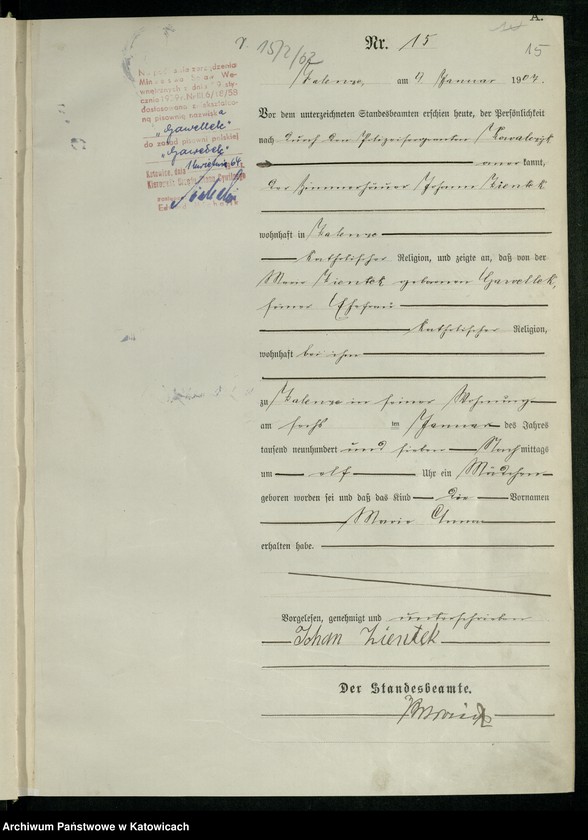 A.
15/2/62
Nr. 15
15
Zalenze, am 7 Januar 1907.
Vor dem unterzeichneten Standesbeamten erschien heute, der Persönlichkeit
nach durch den Polizeisergeanten Kowalczyk
anerkannt,
der Zimmerhäuer Johann Zientek
wohnhaft in Zalenze
katholischer Religion, und zeigte an, daß von der
Marie Zientek geborenen Gawellek,
seiner Ehefrau
katholischer Religion,
wohnhaft bei ihm
zu Zalenze in seiner Wohnung
am sechsten Januar des Jahres
tausend neunhundert und sieben Nachmittags
um elf Uhr ein Mädchen
geboren worden sei und daß das Kind die Vornamen
Marie Anna
erhalten habe.
Vorgelesen, genehmigt und unterschrieben
Johan Zientek
Der Standesbeamte.
Na podstawie zarządzenia
Ministra Spraw We-
wnętrznych z dnia
dostosowano
pisownię nazwiska
"Gawellek"
do zasad pisowni polskiej
"Gawełek"
Katowice, dnia 1 kwietnia 64 r.
Kierownik Urzędu Stanu Cywilnego
Archiwum Państwowe w Katowicach